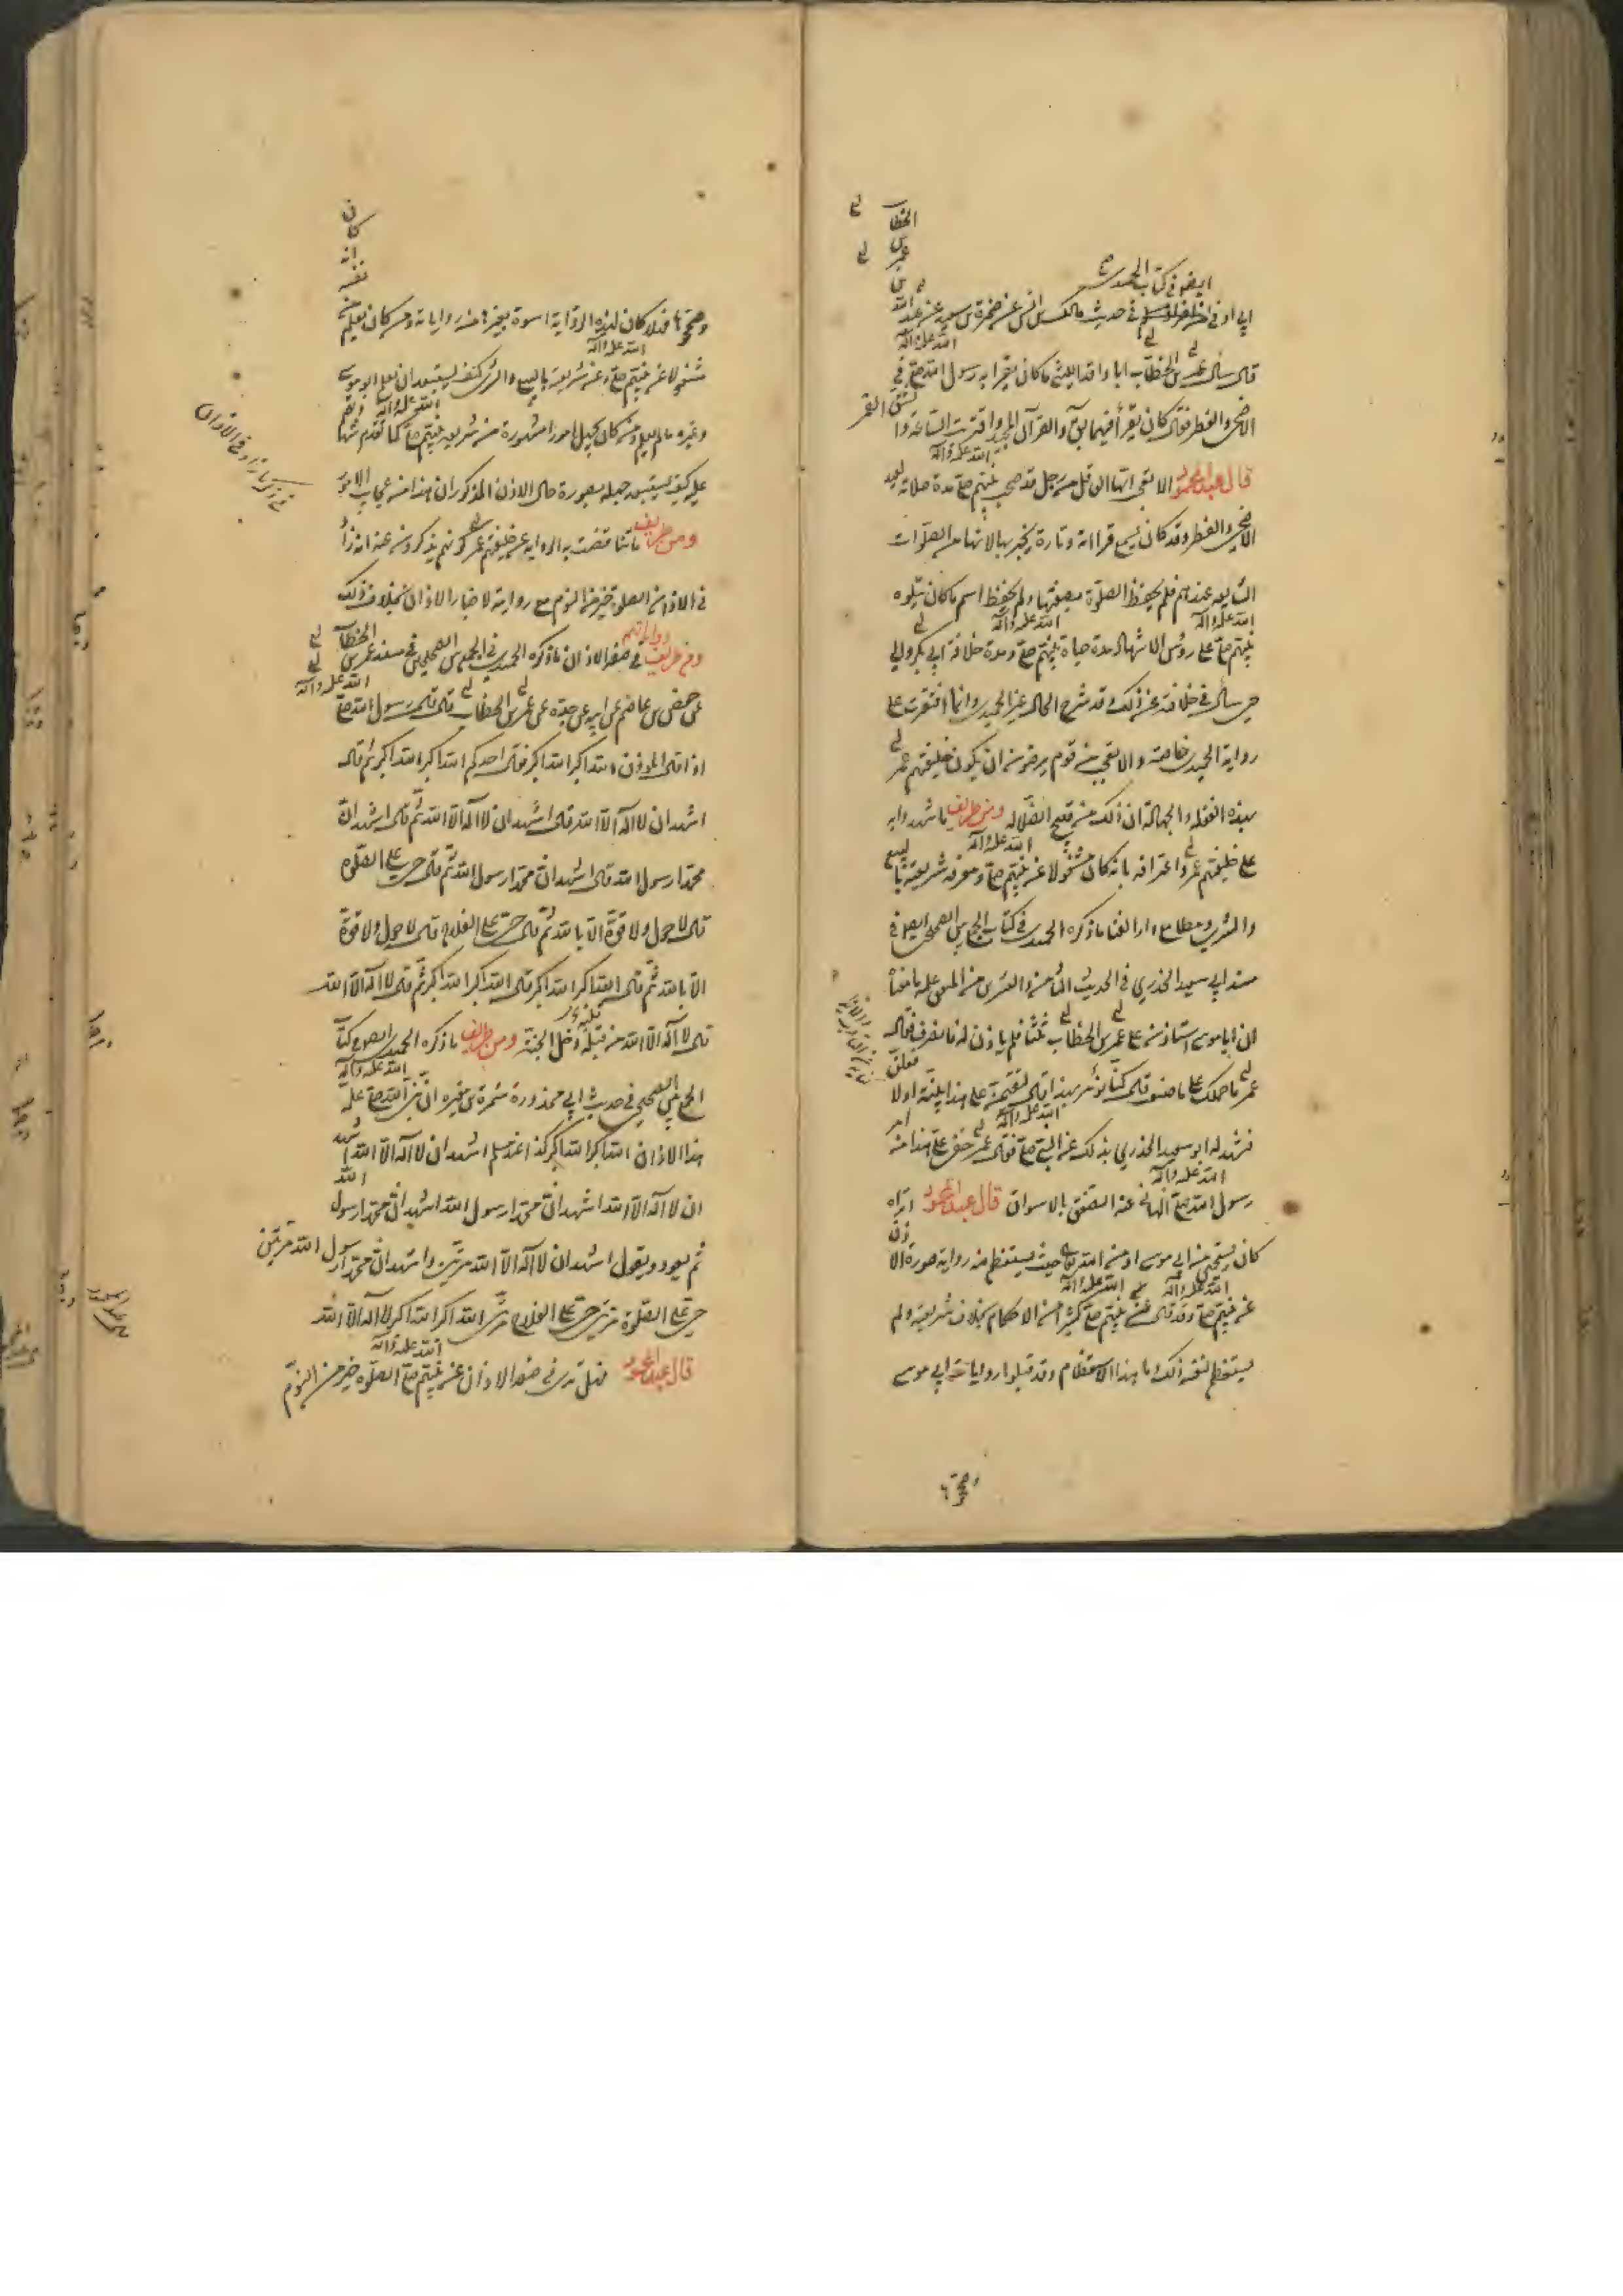 ايضا في كتاب الحميدي
ابي اوفى في حديث مالك بن انس عن ضمرة بن سعيد عن عبد الله
قال سأل عمر بن الخطاب ابا واقد الليثي ما كان يقرأ به رسول الله صلى الله عليه وآله في
الاضحى والفطر فقال كان يقرأ فيهما بق والقرآن المجيد واقتربت الساعة وانشق القمر
قال عبد المحمود الا تعجب ايها العاقل من رجل قد صحب نبيهم صلى الله عليه وآله مدة صلاته لعيد
الاضحى والفطر وقد كان يسمع قراءته وتارة يخبر بها لانها من الصلوات
الشايعة عندهم فلم يحفظ الصلوة بصفتها ولم يحفظ اسم ما كان يتلوه
نبيهم صلى الله عليه وآله على رؤس الاشهاد مدة حياة نبيهم صلى الله عليه وآله ومدة خلافة ابي بكر والي
حين سأل في خلافته عن ذلك وقد شرح الحال غير الحميدي وانما اقتصرت على
رواية الحميدي خاصة والا تعجب من قوم يرضون ان يكون خليفتهم عمر
بهذه الغفلة والجهالة ان ذلك من قبيح الضلالة ومن طرايف ما شهدوا به
على خليفتهم عمر واعترافه بانه كان مشغولا عن نبيهم صلى الله عليه وآله ومعرفة شريعته بالبيع
والشرى ومطامع دار الفنا ما ذكره الحميدي في كتاب الجمع بين الصحيحين ايضا في
مسند ابي سعيد الخدري في الحديث الثامن والعشرين من المتفق عليه بامضاه
ان ابا موسى استاذن على عمر بن الخطاب ثلثا فلم ياذن له فانصرف فقال
عمر ما حملك على ما صنعت قال كنا نؤمر بهذا قال لتقيمن على هذا بينة او لافعلن
فشهد له ابو سعيد الخدري بذلك عن النبي صلى الله عليه وآله فقال عمر خفي علي هذا من امر
رسول الله صلى الله عليه وآله الهاني عنه الصفق بالاسواق قال عبد المحمود اتراه
كان يستحيي من ابي موسى او من الله تعالى حيث يستعظم منه رواية صورة الاذن
عن نبيهم صلى الله عليه وآله وقد قال عن نبيهم صلى الله عليه وآله كثير من الاحكام بخلاف شريعته ولم
يستعظم لنفسه ذلك ما هذا الاستعظام وقد قبلوا روايات ابي موسى
وصححوها
وصححوها فهلا كان لهذه الرواية اسوة بغيرها من رواياته ومن كان يعلم من نفسه انه كان
مشغولا عن نبيهم صلى الله عليه وآله وعن شريعته بالبيع والشرى كيف يستبعد ان يعلم ابو موسى
وغيره ما لم يعلم ومن كان يجهل امورا مشهورة من شريعة نبيهم صلى الله عليه وآله كما تقدم شهادتهم
عليه كيف يستبعد جهله بصورة حال الاذن المذكور ان هذا من عجايب الامور
ومن طرايف ما تناقضت به الرواية عن خليفتهم عمر كونهم يذكرون عنه انه زاد
في الاذان الصلوة خير من النوم مع رواية لاخبار الاذان بخلاف ذلك
ومن طرايف رواياتهم في صفة الاذان ما ذكره الحميدي في الجمع بين الصحيحين في مسند عمر بن الخطاب
عن حفص بن عاصم عن ابيه عن جده عن عمر بن الخطاب قال قال رسول الله صلى الله عليه وآله
اذا قال المؤذن الله اكبر الله اكبر فقال احدكم الله اكبر الله اكبر ثم قال
اشهد ان لا اله الا الله قال اشهد ان لا اله الا الله ثم قال اشهد ان
محمدا رسول الله قال اشهد ان محمدا رسول الله ثم قال حي على الصلوة
قال لا حول ولا قوة الا بالله ثم قال حي على الفلاح قال لا حول ولا قوة
الا بالله ثم قال الله اكبر الله اكبر قال الله اكبر الله اكبر ثم قال لا اله الا الله
قال لا اله الا الله من قلبه دخل الجنة ومن طرايف ما ذكره الحميدي ايضا في كتاب
الجمع بين الصحيحين في حديث ابي محذورة سمرة بن مغيرة ان نبي الله صلى الله عليه وآله علمه
هذا الاذان الله اكبر الله اكبر كذا عند مسلم اشهد ان لا اله الا الله اشهد
ان لا اله الا الله اشهد ان محمدا رسول الله اشهد ان محمدا رسول الله
ثم يعود ويقول اشهد ان لا اله الا الله مرتين واشهد ان محمدا رسول الله مرتين
حي على الصلوة مرتين حي على الفلاح مرتين الله اكبر الله اكبر لا اله الا الله
قال عبد المحمود فهل ترى في صفة الاذان عن نبيهم صلى الله عليه وآله الصلوة خير من النوم